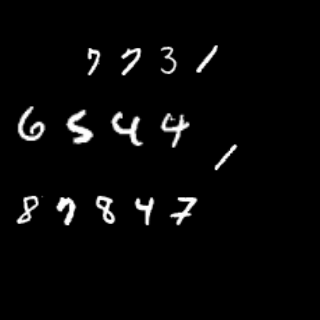 7731
6544
1
87847